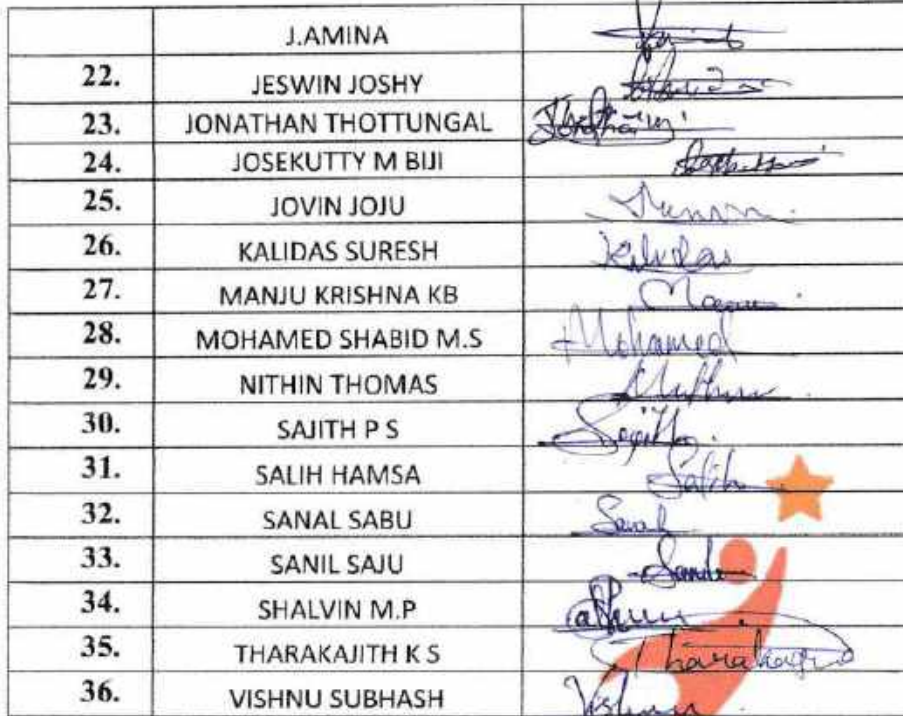 J.AMINA
22. JESWIN JOSHY
23. JONATHAN THOTTUNGAL Jonathan
24. JOSEKUTTY M BIJI
25. JOVIN JOJU
26. KALIDAS SURESH Kalidas
27. MANJU KRISHNA KB
28. MOHAMED SHABID M.S Mohamed
29. NITHIN THOMAS
30. SAJITH P S Sajith
31. SALIH HAMSA Salih
32. SANAL SABU Sanal
33. SANIL SAJU
34. SHALVIN M.P
35. THARAKAJITH K S Tharakajith
36. VISHNU SUBHASH Vishnu